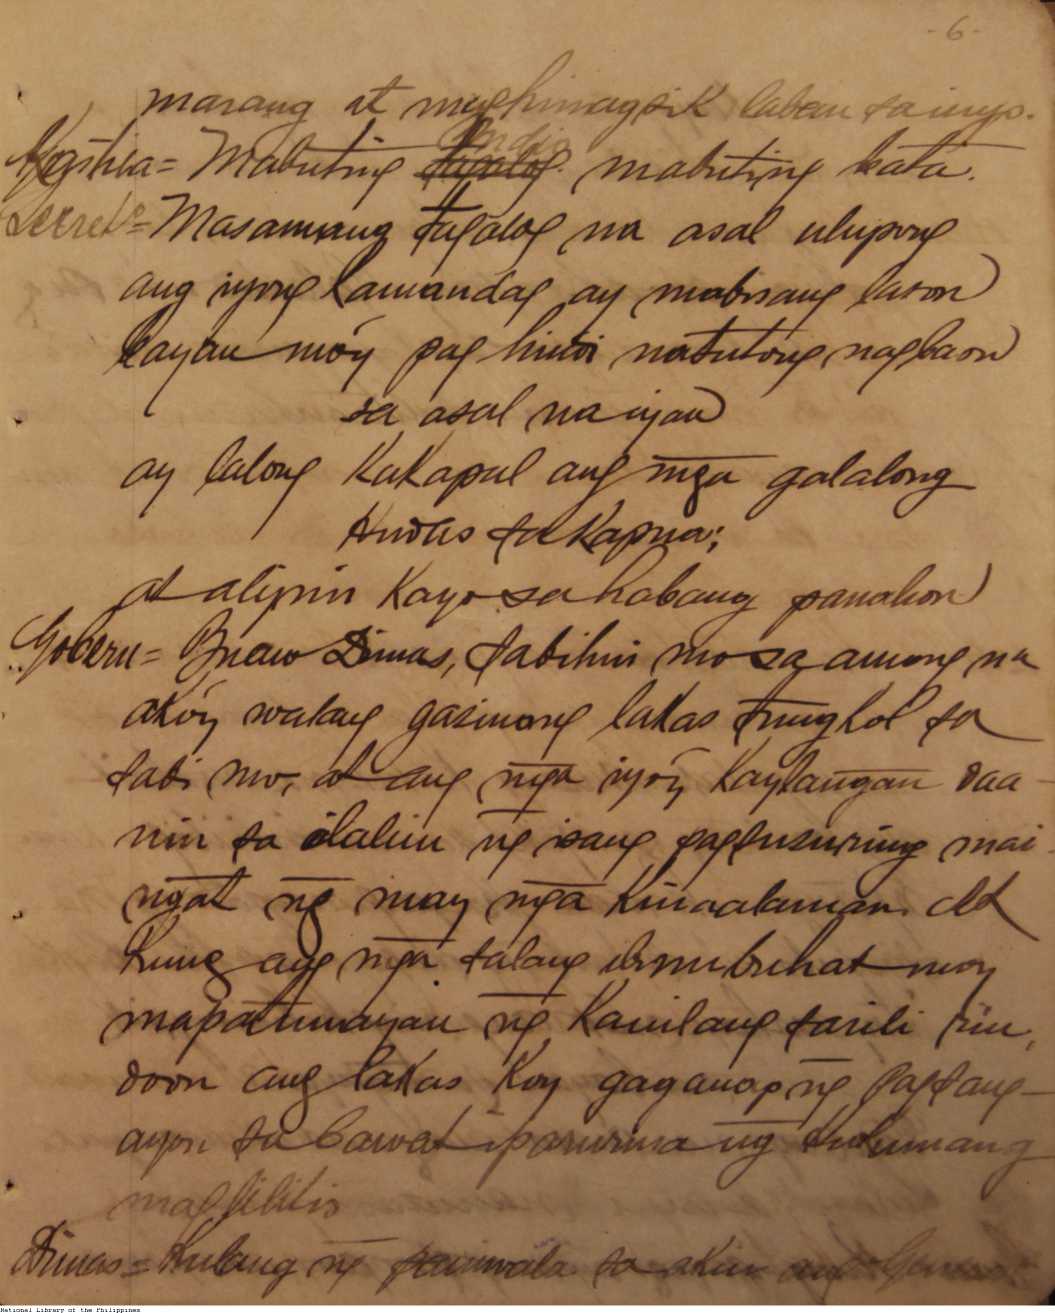 -6-
marang at maghimagsik laban sa inyo.
Mabuting India mabuting bata.
Secret= Masamang tagalog na asal ulupong
ang iyong kamandag ay mabisang lason
kayan mo'y pag hindi natutong nagbaon
sa asal na iyan
ay lalong kakapal ang mga galalong
Hudas sa kapua;
at alipin kayo sa habang panahon
Gobern= Ikaw Dimas, sabihin mo sa among na
ako'y walang gasinong lakas tungkol sa
sabi mo, at ang mga iyo'y kaylangan daa-
nin sa ilalim ng isang pagsusuring mai-
ngat ng may mga kinaalaman. At
kung ang mga salang ibinubuhat moy
mapatunayan ng kanilang sarili rin,
doon ang lakas koy gaganap ng pagsang-
ayon sa bawat iparurusa ng hukumang
maglilitis
Dimas= Kulang ng paniwala sa akin ang
National Library of the Philippines